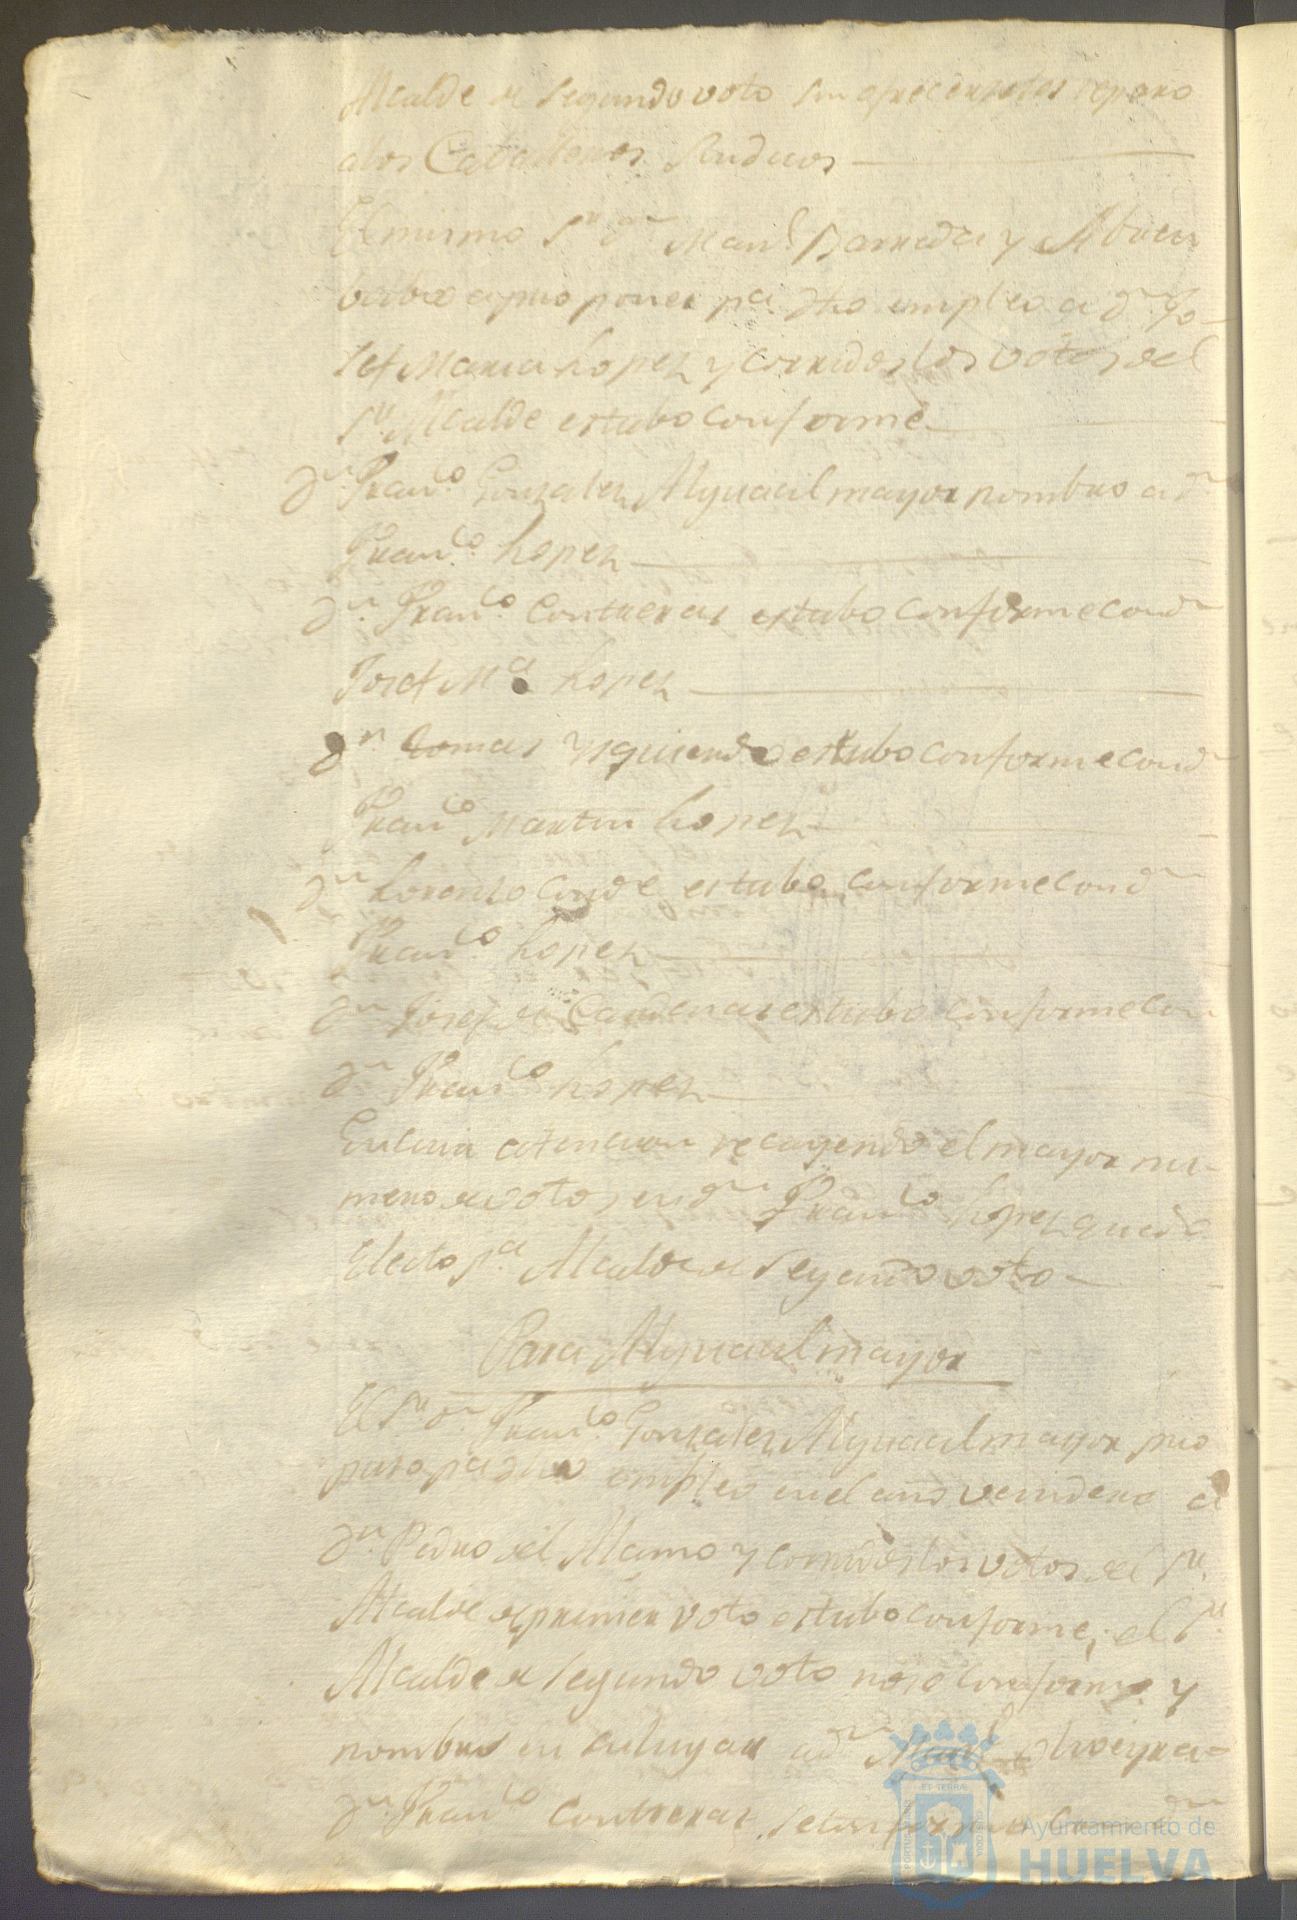 Alcalde de Segundo voto sin ofrecerseles reparo
alos Caballeros Sindicos
El mismo Sr. dn. Manl. Barreda y
bolbio a proponer pa. dho empleo a dn. Jo-
sef Maria Lopez y corridos los votos del
Sr. Alcalde estubo conforme
dn. Franco. Gonzalez Alguacil mayor nombro a dn
Franco. Lopez
dn. Franco. Contreras estubo conforme con dn
Josef Ma. Lopez
dn. tomas Ysquierdo estubo conforme con dn
Franco. Martin Lopez
dn Lorenzo Conde estubo conforme con dn
Franco. Lopez
dn Josef de Cardenas estubo conforme con
dn Franco. Lopez
En cuia atencion recayendo el mayor nu-
mero de votos, en dn Franco. Lopez queda
Electo pa. Alcalde de Segundo voto
Para Alguacil mayor
El Sr. dn Franco. Gonzalez Alguacil mayor pro
puso pa. dho empleo en el año venidero a
dn. Pedro del Alamo y corridos los votos del Sr.
Alcalde de primer voto estubo conforme, el Sr.
Alcalde de segundo voto no se conformo y
nombro en su lugar a dn Manl. Oliveyra
dn. Franco. Contreras, se conformo con dn
ET TERRÆ
Ayuntamiento de
HUELVA